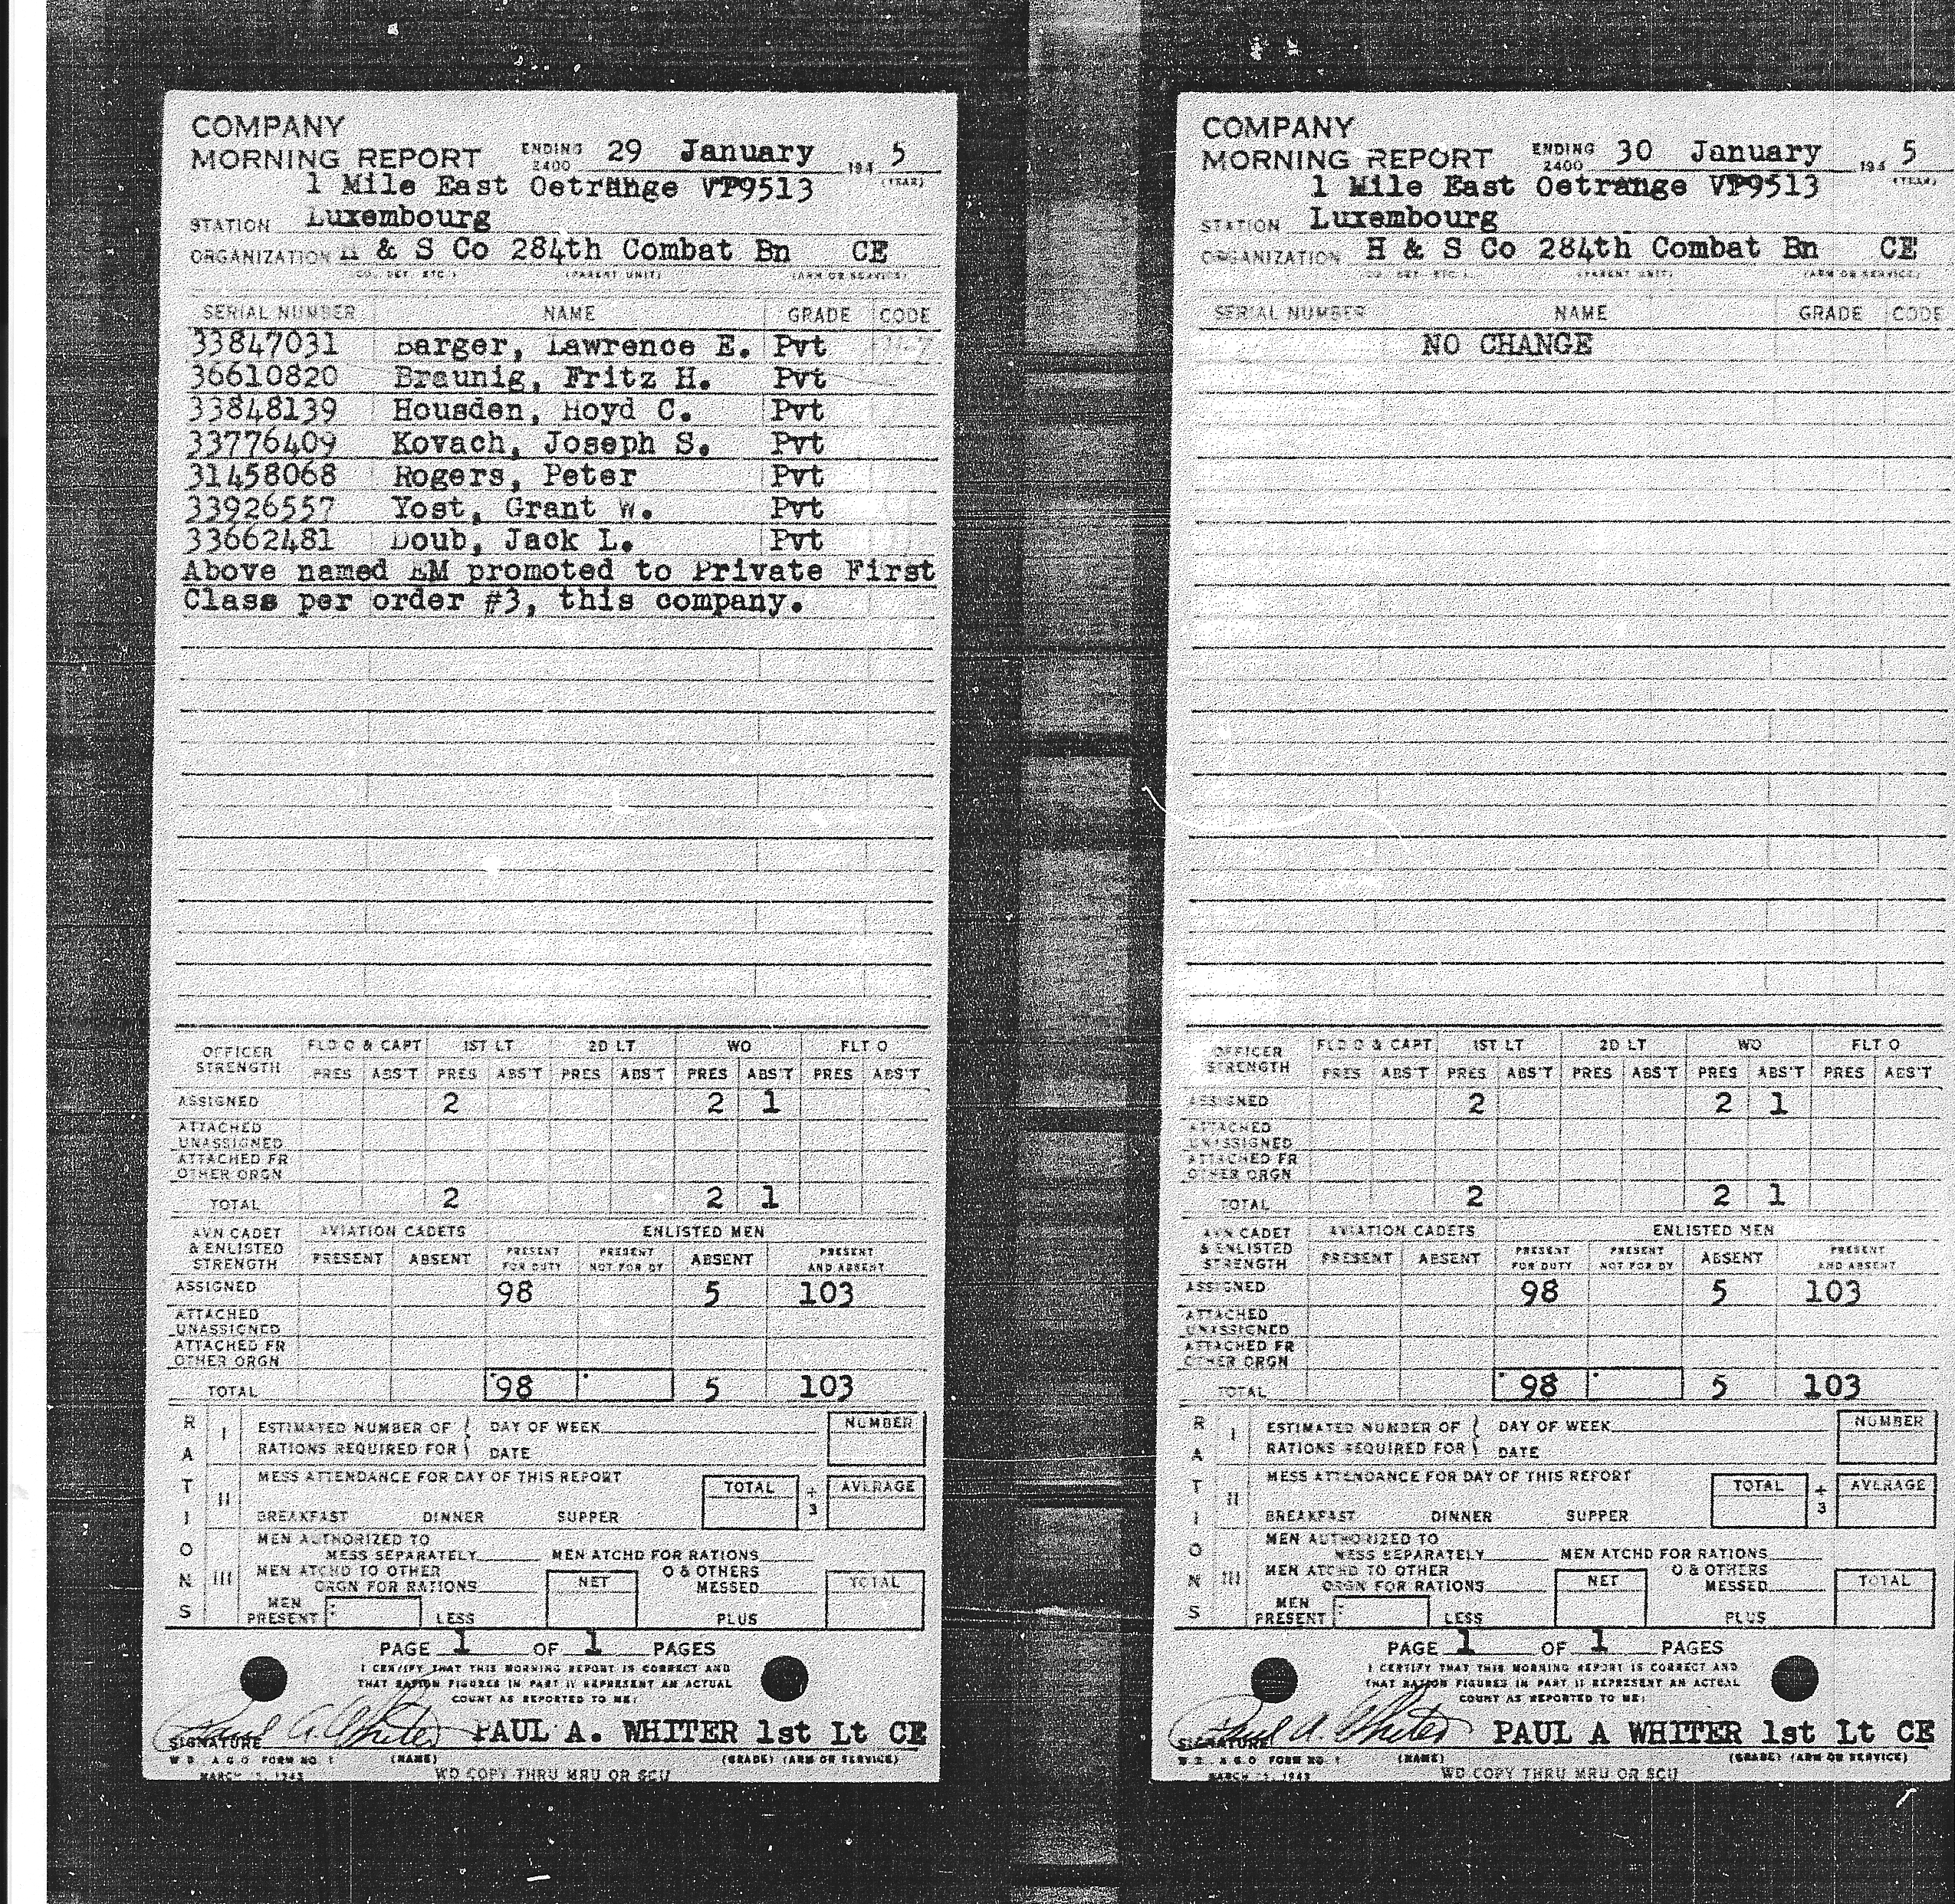 COMPANY
MORNING REPORT ENDING 2400 29 January 194 5
(YEAR)
1 Mile East Oetrange VP9513
STATION Luxembourg
ORGANIZATION H & S Co 284th Combat Bn CE
(CO. DET. ETC.) (PARENT UNIT) (ARM OR SERVICE)
SERIAL NUMBER NAME GRADE CODE
33847031 Barger, Lawrence E. Pvt
36610820 Braunig, Fritz H. Pvt
33848139 Housden, Hoyd C. Pvt
33776409 Kovach, Joseph S. Pvt
31458068 Rogers, Peter Pvt
33926557 Yost, Grant W. Pvt
33662481 Doub, Jack L. Pvt
Above named EM promoted to Private First
Class per order #3, this company.
OFFICER STRENGTH FLD O & CAPT 1ST LT 2D LT WO FLT O
PRES ABS'T PRES ABS'T PRES ABS'T PRES ABS'T PRES ABS'T
ASSIGNED 2 2 1
ATTACHED UNASSIGNED
ATTACHED FR OTHER ORGN
TOTAL 2 2 1
AVN CADET & ENLISTED STRENGTH AVIATION CADETS ENLISTED MEN
PRESENT ABSENT PRESENT FOR DUTY PRESENT NOT FOR DY ABSENT PRESENT AND ABSENT
ASSIGNED 98 5 103
ATTACHED UNASSIGNED
ATTACHED FR OTHER ORGN
TOTAL 98 5 103
RATIONS
I ESTIMATED NUMBER OF RATIONS REQUIRED FOR DAY OF WEEK NUMBER
DATE
II MESS ATTENDANCE FOR DAY OF THIS REPORT TOTAL ÷ 3 AVERAGE
BREAKFAST DINNER SUPPER
III MEN AUTHORIZED TO
MESS SEPARATELY MEN ATCHD FOR RATIONS
MEN ATCHD TO OTHER ORGN FOR RATIONS NET O & OTHERS MESSED TOTAL
MEN PRESENT LESS PLUS
PAGE 1 OF 1 PAGES
I CERTIFY THAT THIS MORNING REPORT IS CORRECT AND
THAT RATION FIGURES IN PART II REPRESENT AN ACTUAL
COUNT AS REPORTED TO ME:
Paul A. Whiter PAUL A. WHITER 1st Lt CE
SIGNATURE (NAME) (GRADE) (ARM OR SERVICE)
W D , A G O FORM NO. 1
MARCH 15, 1943 WD COPY THRU MRU OR SCU
COMPANY
MORNING REPORT ENDING 2400 30 January 194 5
(YEAR)
1 Mile East Oetrange VP9513
STATION Luxembourg
ORGANIZATION H & S Co 284th Combat Bn CE
(CO. DET. ETC.) (PARENT UNIT) (ARM OR SERVICE)
SERIAL NUMBER NAME GRADE CODE
NO CHANGE
OFFICER STRENGTH FLD O & CAPT 1ST LT 2D LT WO FLT O
PRES ABS'T PRES ABS'T PRES ABS'T PRES ABS'T PRES ABS'T
ASSIGNED 2 2 1
ATTACHED UNASSIGNED
ATTACHED FR OTHER ORGN
TOTAL 2 2 1
AVN CADET & ENLISTED STRENGTH AVIATION CADETS ENLISTED MEN
PRESENT ABSENT PRESENT FOR DUTY PRESENT NOT FOR DY ABSENT PRESENT AND ABSENT
ASSIGNED 98 5 103
ATTACHED UNASSIGNED
ATTACHED FR OTHER ORGN
TOTAL 98 5 103
RATIONS
I ESTIMATED NUMBER OF RATIONS REQUIRED FOR DAY OF WEEK NUMBER
DATE
II MESS ATTENDANCE FOR DAY OF THIS REPORT TOTAL ÷ 3 AVERAGE
BREAKFAST DINNER SUPPER
III MEN AUTHORIZED TO
MESS SEPARATELY MEN ATCHD FOR RATIONS
MEN ATCHD TO OTHER ORGN FOR RATIONS NET O & OTHERS MESSED TOTAL
MEN PRESENT LESS PLUS
PAGE 1 OF 1 PAGES
I CERTIFY THAT THIS MORNING REPORT IS CORRECT AND
THAT RATION FIGURES IN PART II REPRESENT AN ACTUAL
COUNT AS REPORTED TO ME:
Paul A. Whiter PAUL A WHITER 1st Lt CE
SIGNATURE (NAME) (GRADE) (ARM OR SERVICE)
W D , A G O FORM NO. 1
MARCH 15, 1943 WD COPY THRU MRU OR SCU